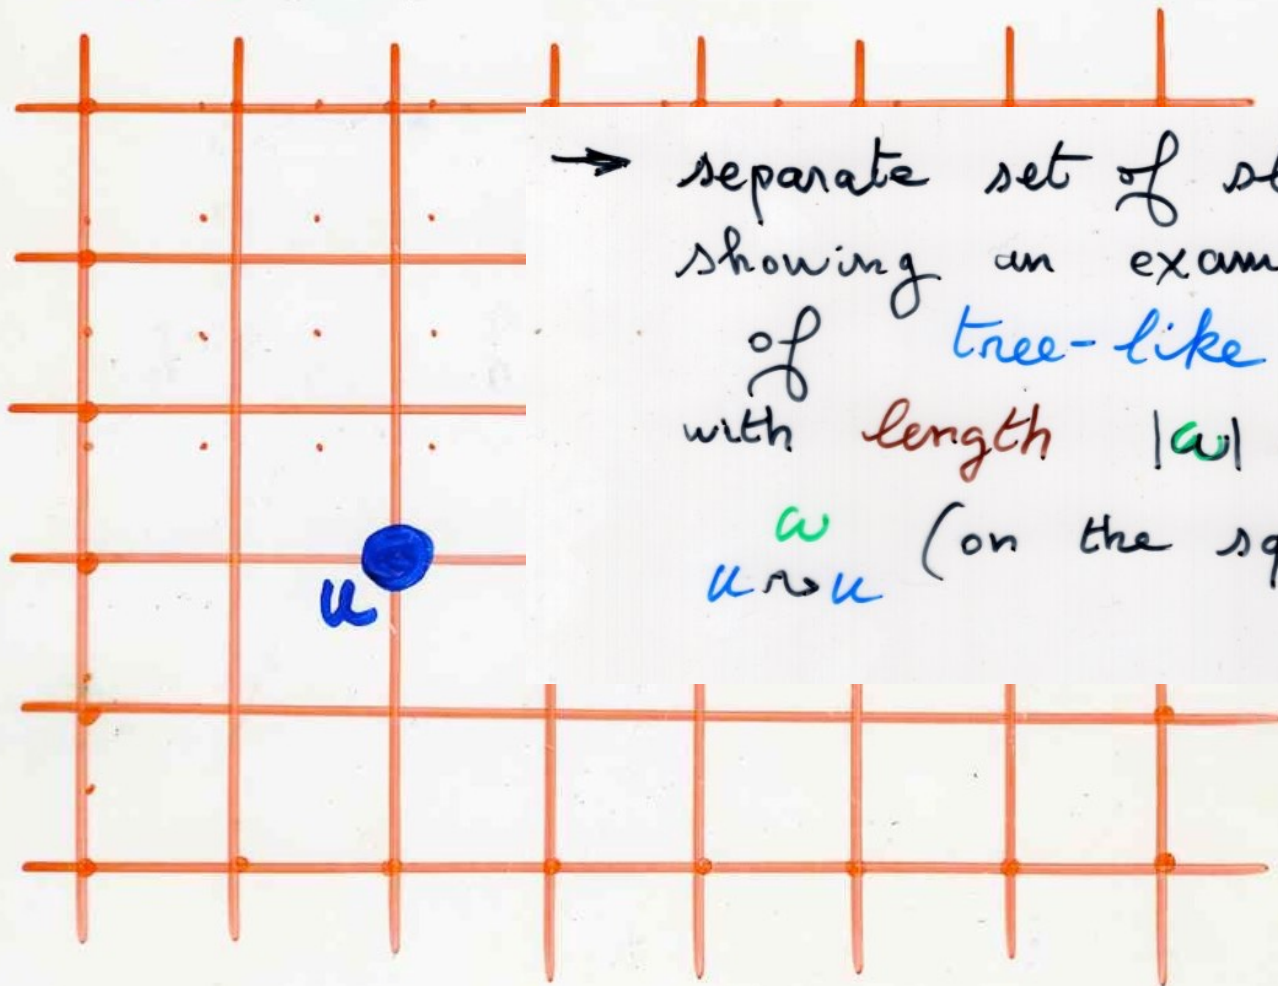 → separate set of
showing an
of tree-like
with length |ω|
ω (on the
u ⇝ u
u